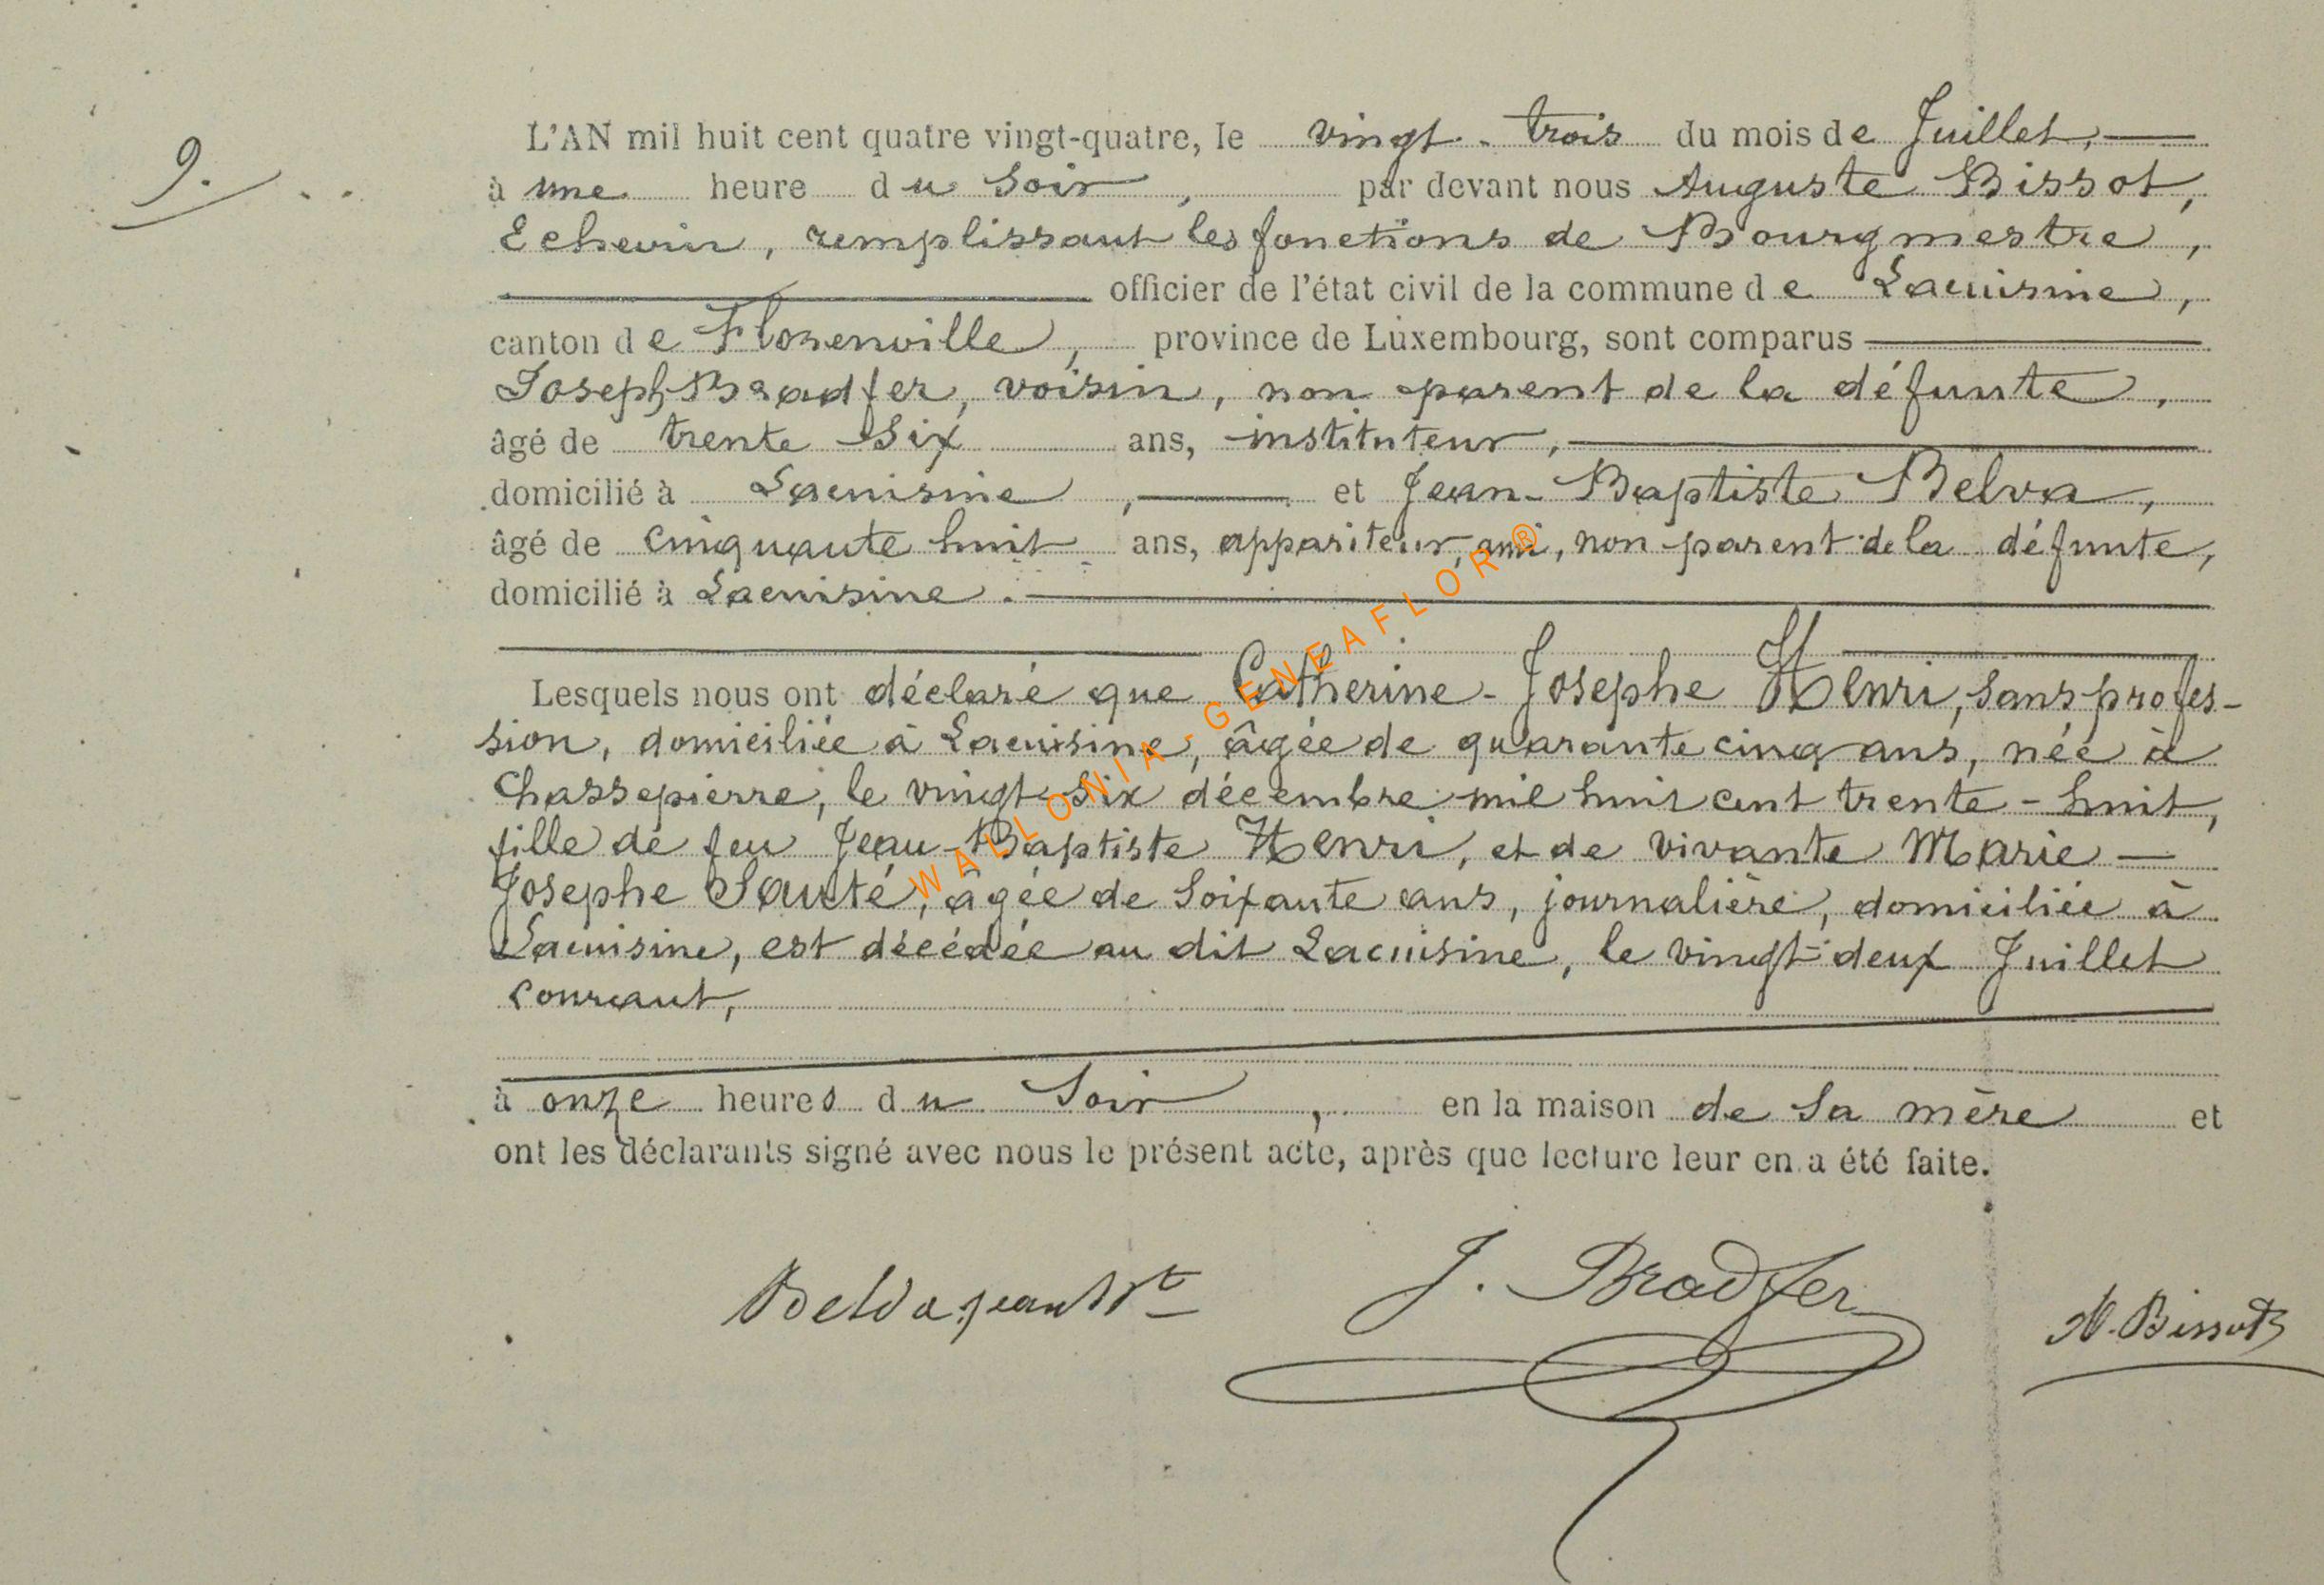 9.
L'AN mil huit cent quatre vingt-quatre, le vingt-trois du mois de Juillet,
à une heure du soir, par devant nous Auguste Bissot,
Echevin, remplissant les fonctions de Bourgmestre,
officier de l'état civil de la commune de Lacuisine,
canton de Florenville, province de Luxembourg, sont comparus
Joseph Bradfer, voisin, non parent de la défunte,
âgé de trente six ans, instituteur,
domicilié à Lacuisine, et Jean-Baptiste Belva,
âgé de cinquante huit ans, appariteur, ami, non parent de la défunte,
domicilié à Lacuisine.
Lesquels nous ont déclaré que Catherine-Josephe Henri, sans profes-
sion, domiciliée à Lacuisine, âgée de quarante cinq ans, née à
Chassepierre, le vingt-six décembre mil huit cent trente-huit,
fille de feu Jean-Baptiste Henri, et de vivante Marie-
Josephe Sauté, âgée de soixante ans, journalière, domiciliée à
Lacuisine, est décédée au dit Lacuisine, le vingt-deux Juillet
courant,
à onze heures du soir, en la maison de sa mère et
ont les déclarants signé avec nous le présent acte, après que lecture leur en a été faite.
Belva jean Bte J. Bradfer A. Bissot
WALLONIA-GENEAFLOR®